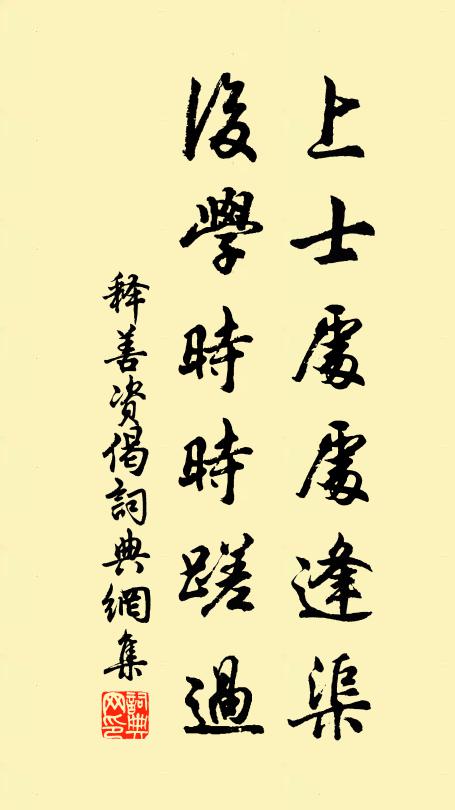 上士處處逢渠
後學時時蹉過
释善资偈詞典網集
詞典網印